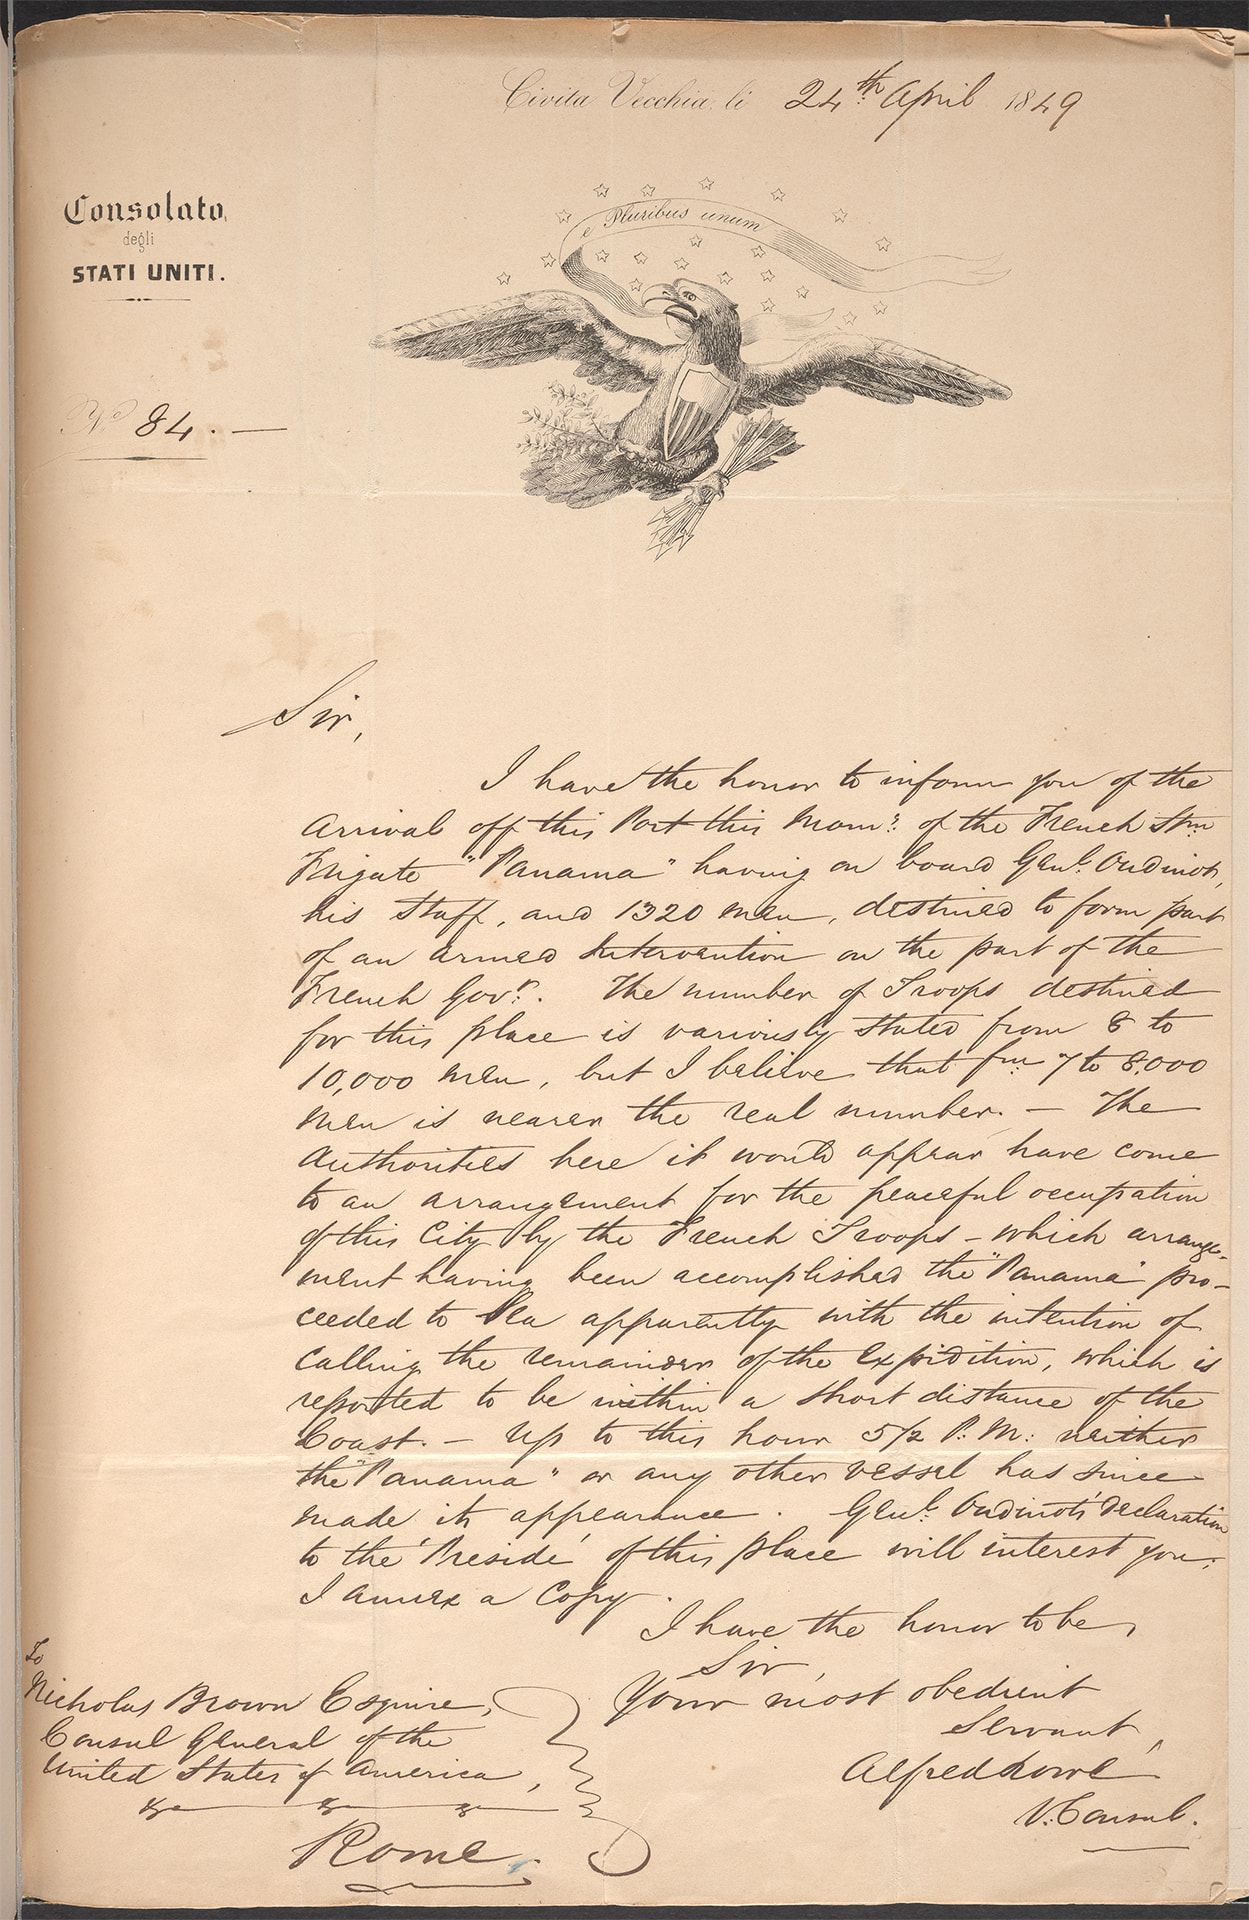 Civita Vecchia, li 24th April 1849
e Pluribus unum
Consolato
degli
STATI UNITI.
No 84. —
Sir,
I have the honor to inform you of the
Arrival off this Port this Morng. of the French Stm
Frigate "Panama" having on board Genl. Oudinot,
his Staff, and 1320 men, destined to form part
of an armed Intervention on the part of the
French Govt. The number of Troops destined
for this place is variously stated from 8 to
10,000 men, but I believe that fm 7 to 8.000
men is nearer the real number. — The
Authorities here it would appear have come
to an arrangement for the peaceful occupation
of this City by the French Troops – which arrange-
ment having been accomplished the "Panama" pro-
ceeded to Sea apparently with the intention of
calling the remainder of the Expidition, which is
reported to be within a short distance of the
Coast. — Up to this hour 5/2 P.M: neither
the "Panama" or any other vessel has since
made its appearance. Genl. Oudinots' declaration
to the 'Preside' of this place will interest you;
I annex a Copy.
I have the honor to be,
Sir,
Your most obedient
Servant,
Alfred Lowe
V. Consul.
To
Nicholas Brown Esquire,
Consul General of the
United States of America,
Rome.